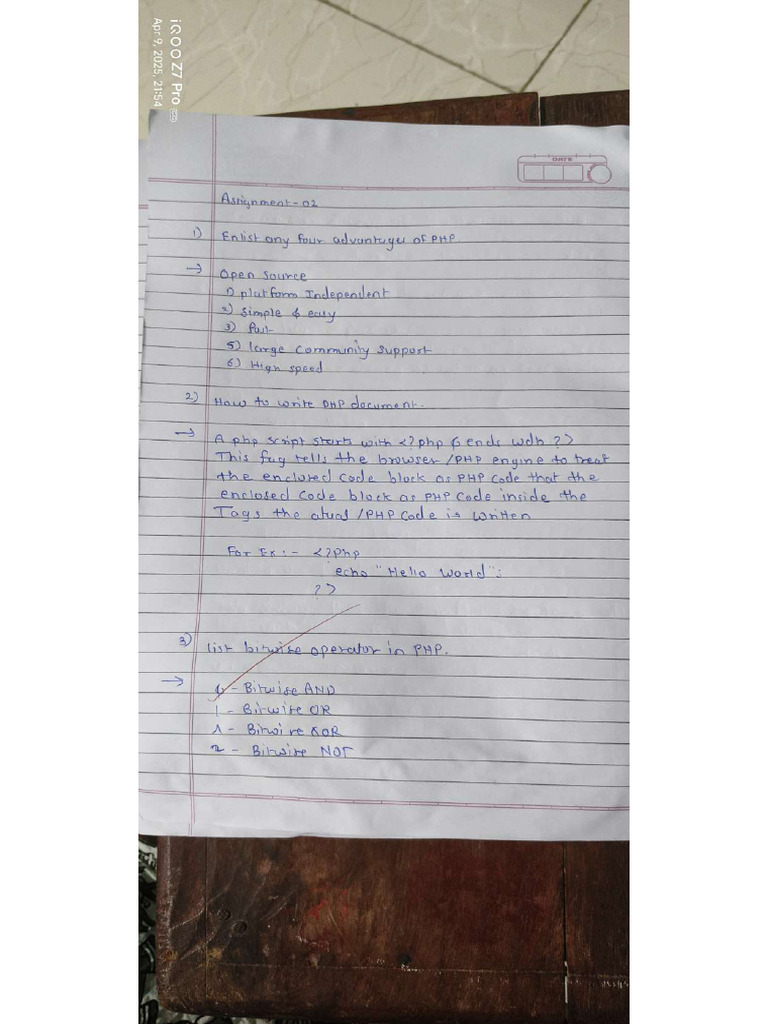 iQOO Z7 Pro 5G
Apr 9, 2025, 21:54
DATE
Assignment-02
1) Enlist any four advantages of PHP.
→ Open Source
1) platform Independent
2) Simple & easy
3) Fast
5) large Community Support
6) High speed
2) How to write PHP document.
→ A php script starts with <?php & ends with ?>
This tag tells the browser/PHP engine to treat
the enclosed code block as PHP Code that the
enclosed Code block as PHP Code inside the
Tags the atual /PHP Code is written
For Ex :- <?php
echo "Hello World";
?>
3) list bitwise operator in PHP.
→ & - Bitwise AND
| - Bitwise OR
^ - Bitwise XOR
~ - Bitwise NOT